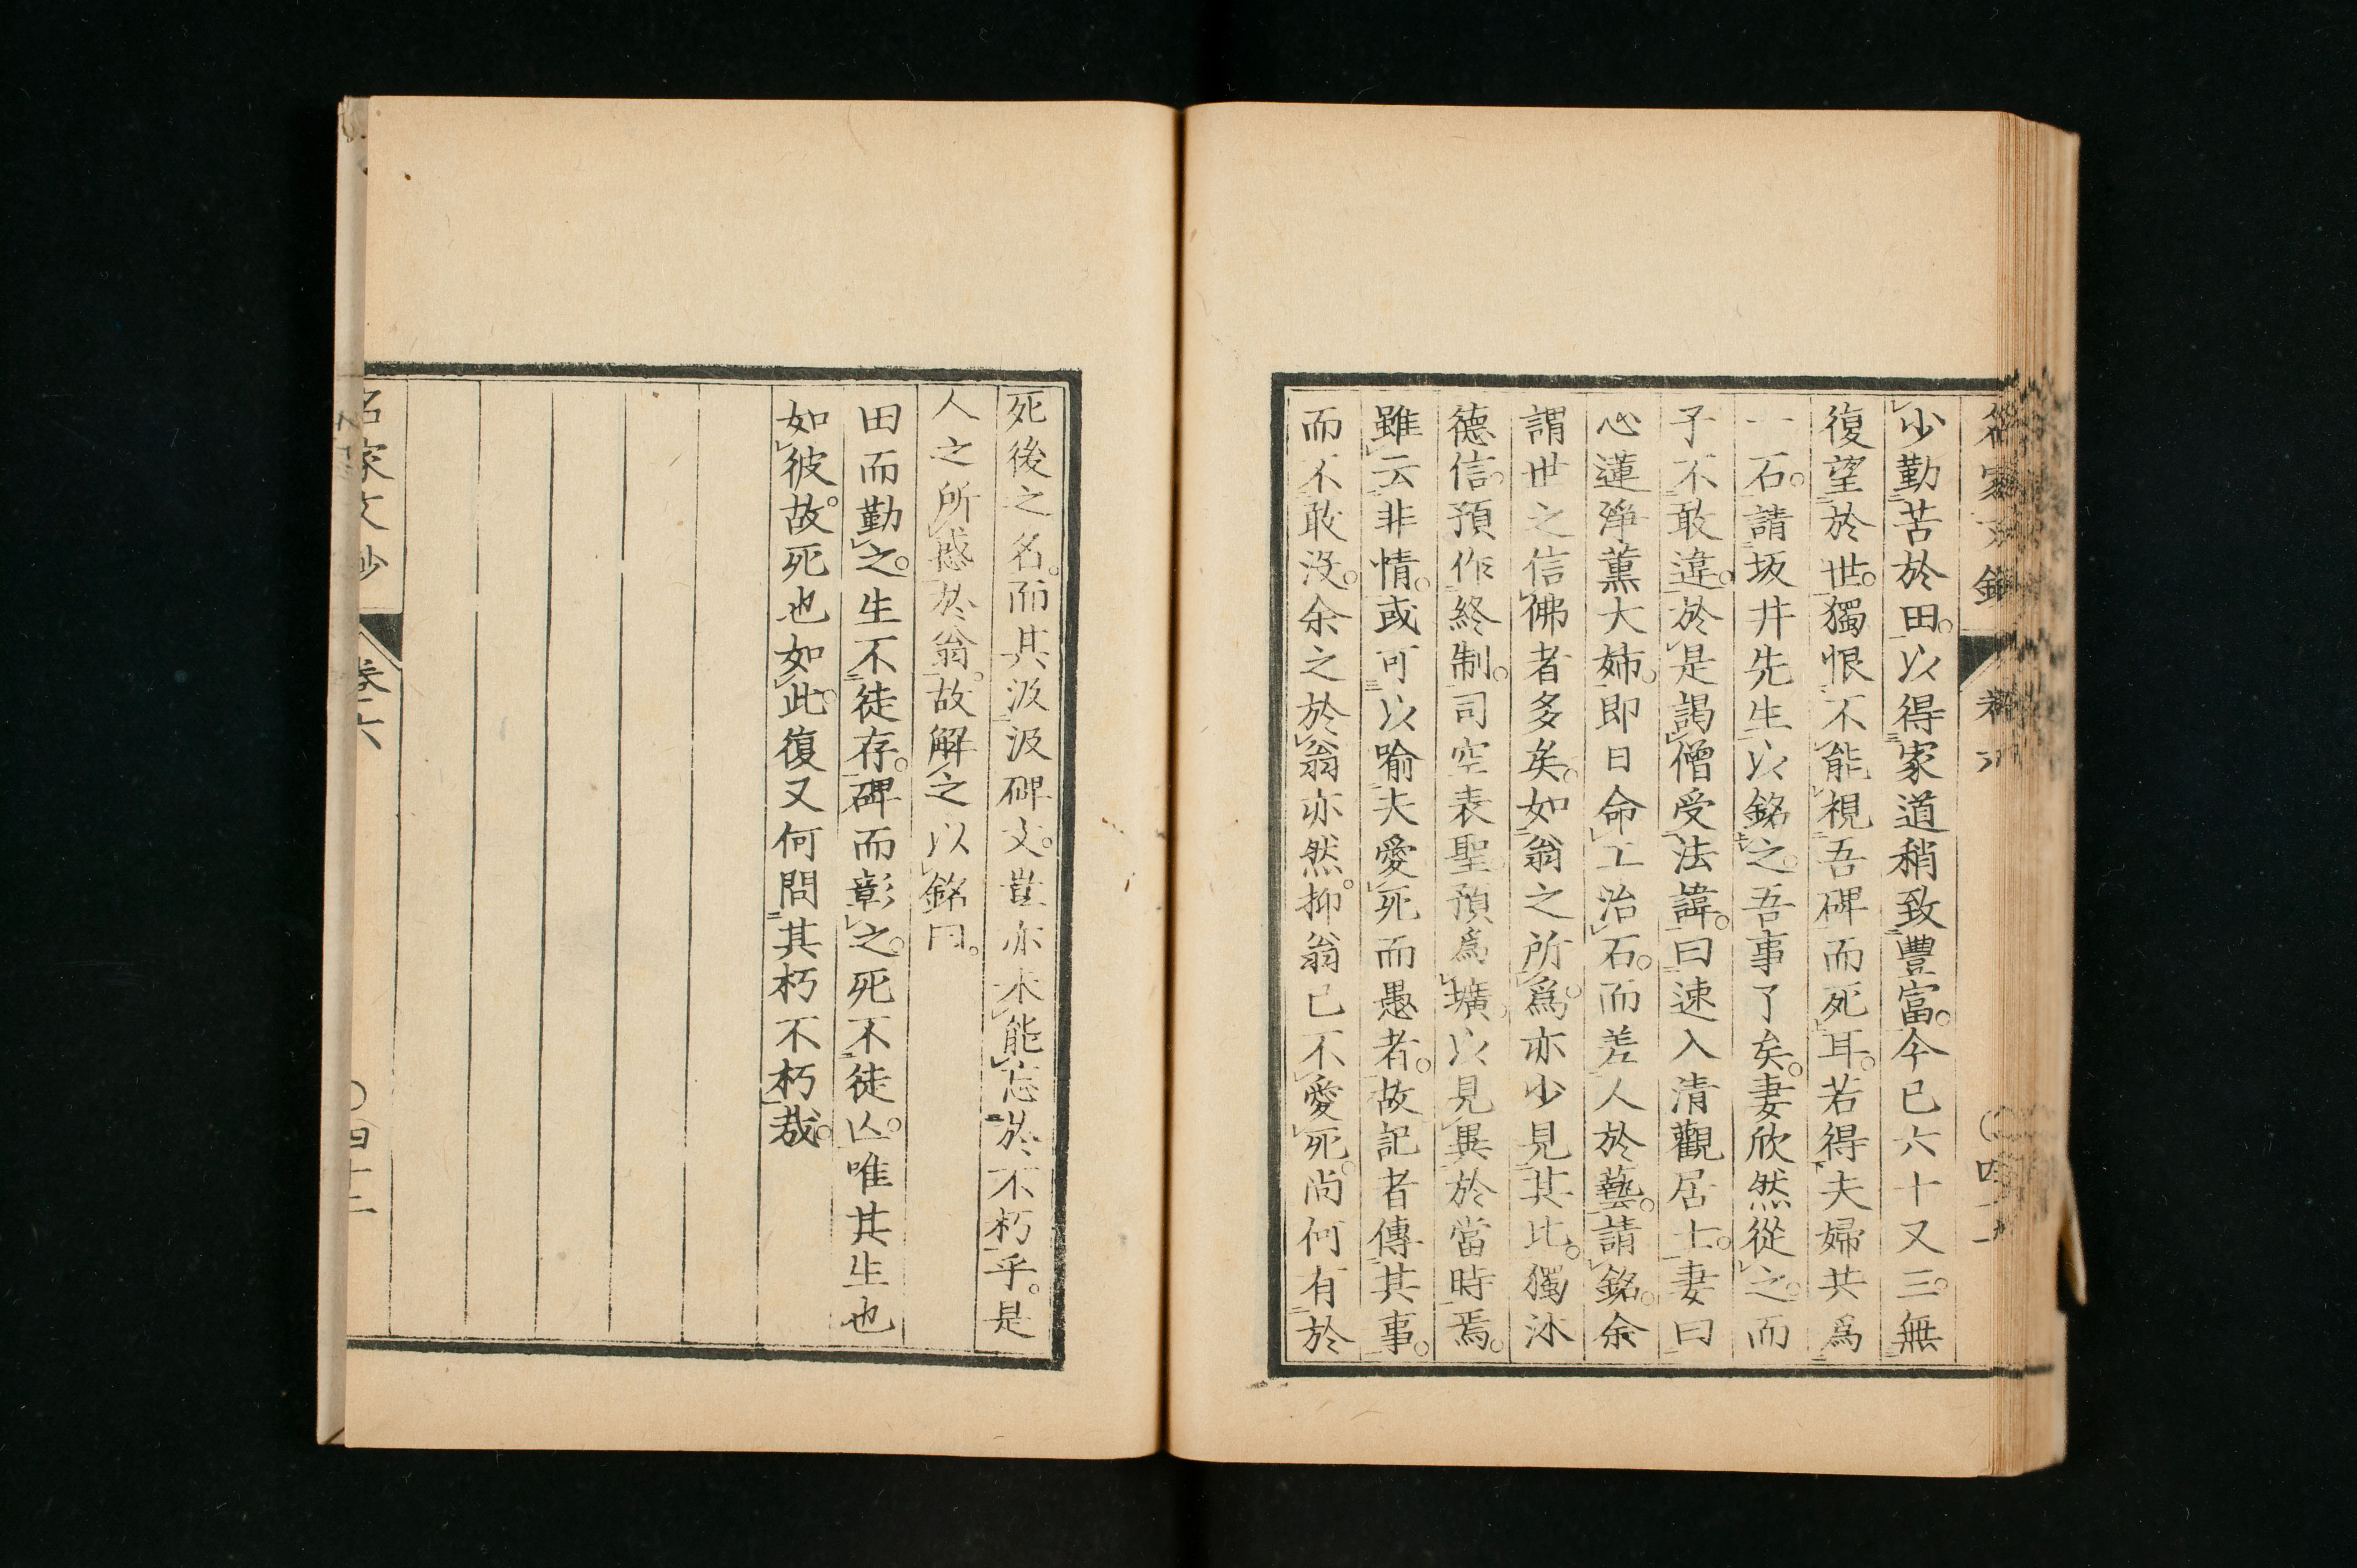 少勤苦於田。以得家道稍致豐富。今已六十又三。無
復望於世。獨恨不能視吾碑而死耳。若得夫婦共爲
一石。請坂井先生以銘之。吾事了矣。妻欣然從之。而
子不敢違。於是謁僧受法諱。曰速入清觀居士。妻曰
心蓮淨薰大姉。即日命工治石。而差人於藝。請銘。余
謂世之信佛者多矣。如翁之所爲。亦少見其比。獨沐
德信。預作終制。司空表聖。預爲壙。以見異於當時焉。
雖云非情。或可以喻夫愛死而愚者。故記者傳其事。
而不敢沒。余之於翁亦然。抑翁已不愛死。尚何有於
死後之名。而其汲汲碑文。豈亦未能忘於不朽乎。是
人之所惑於翁。故解之以銘曰。
田而勤之。生不徒存。碑而彰之。死不徒亾。唯其生也
如彼。故死也如此。復又何問其朽不朽哉。
名家文抄
卷六
〇四十二